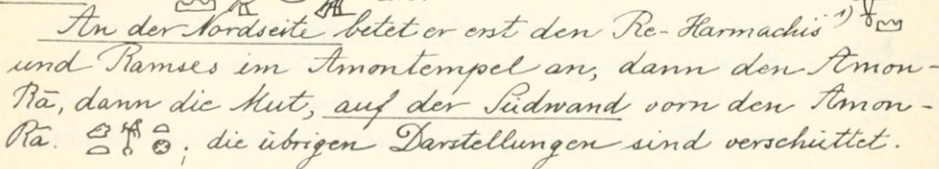 An der Nordseite betet er erst den Re-Harmachis ¹)
und Ramses im Amontempel an, dann den Amon-
Rā, dann die Mut, auf der Südwand vorn den Amon-
Rā. ; die übrigen Darstellungen sind verschüttet.